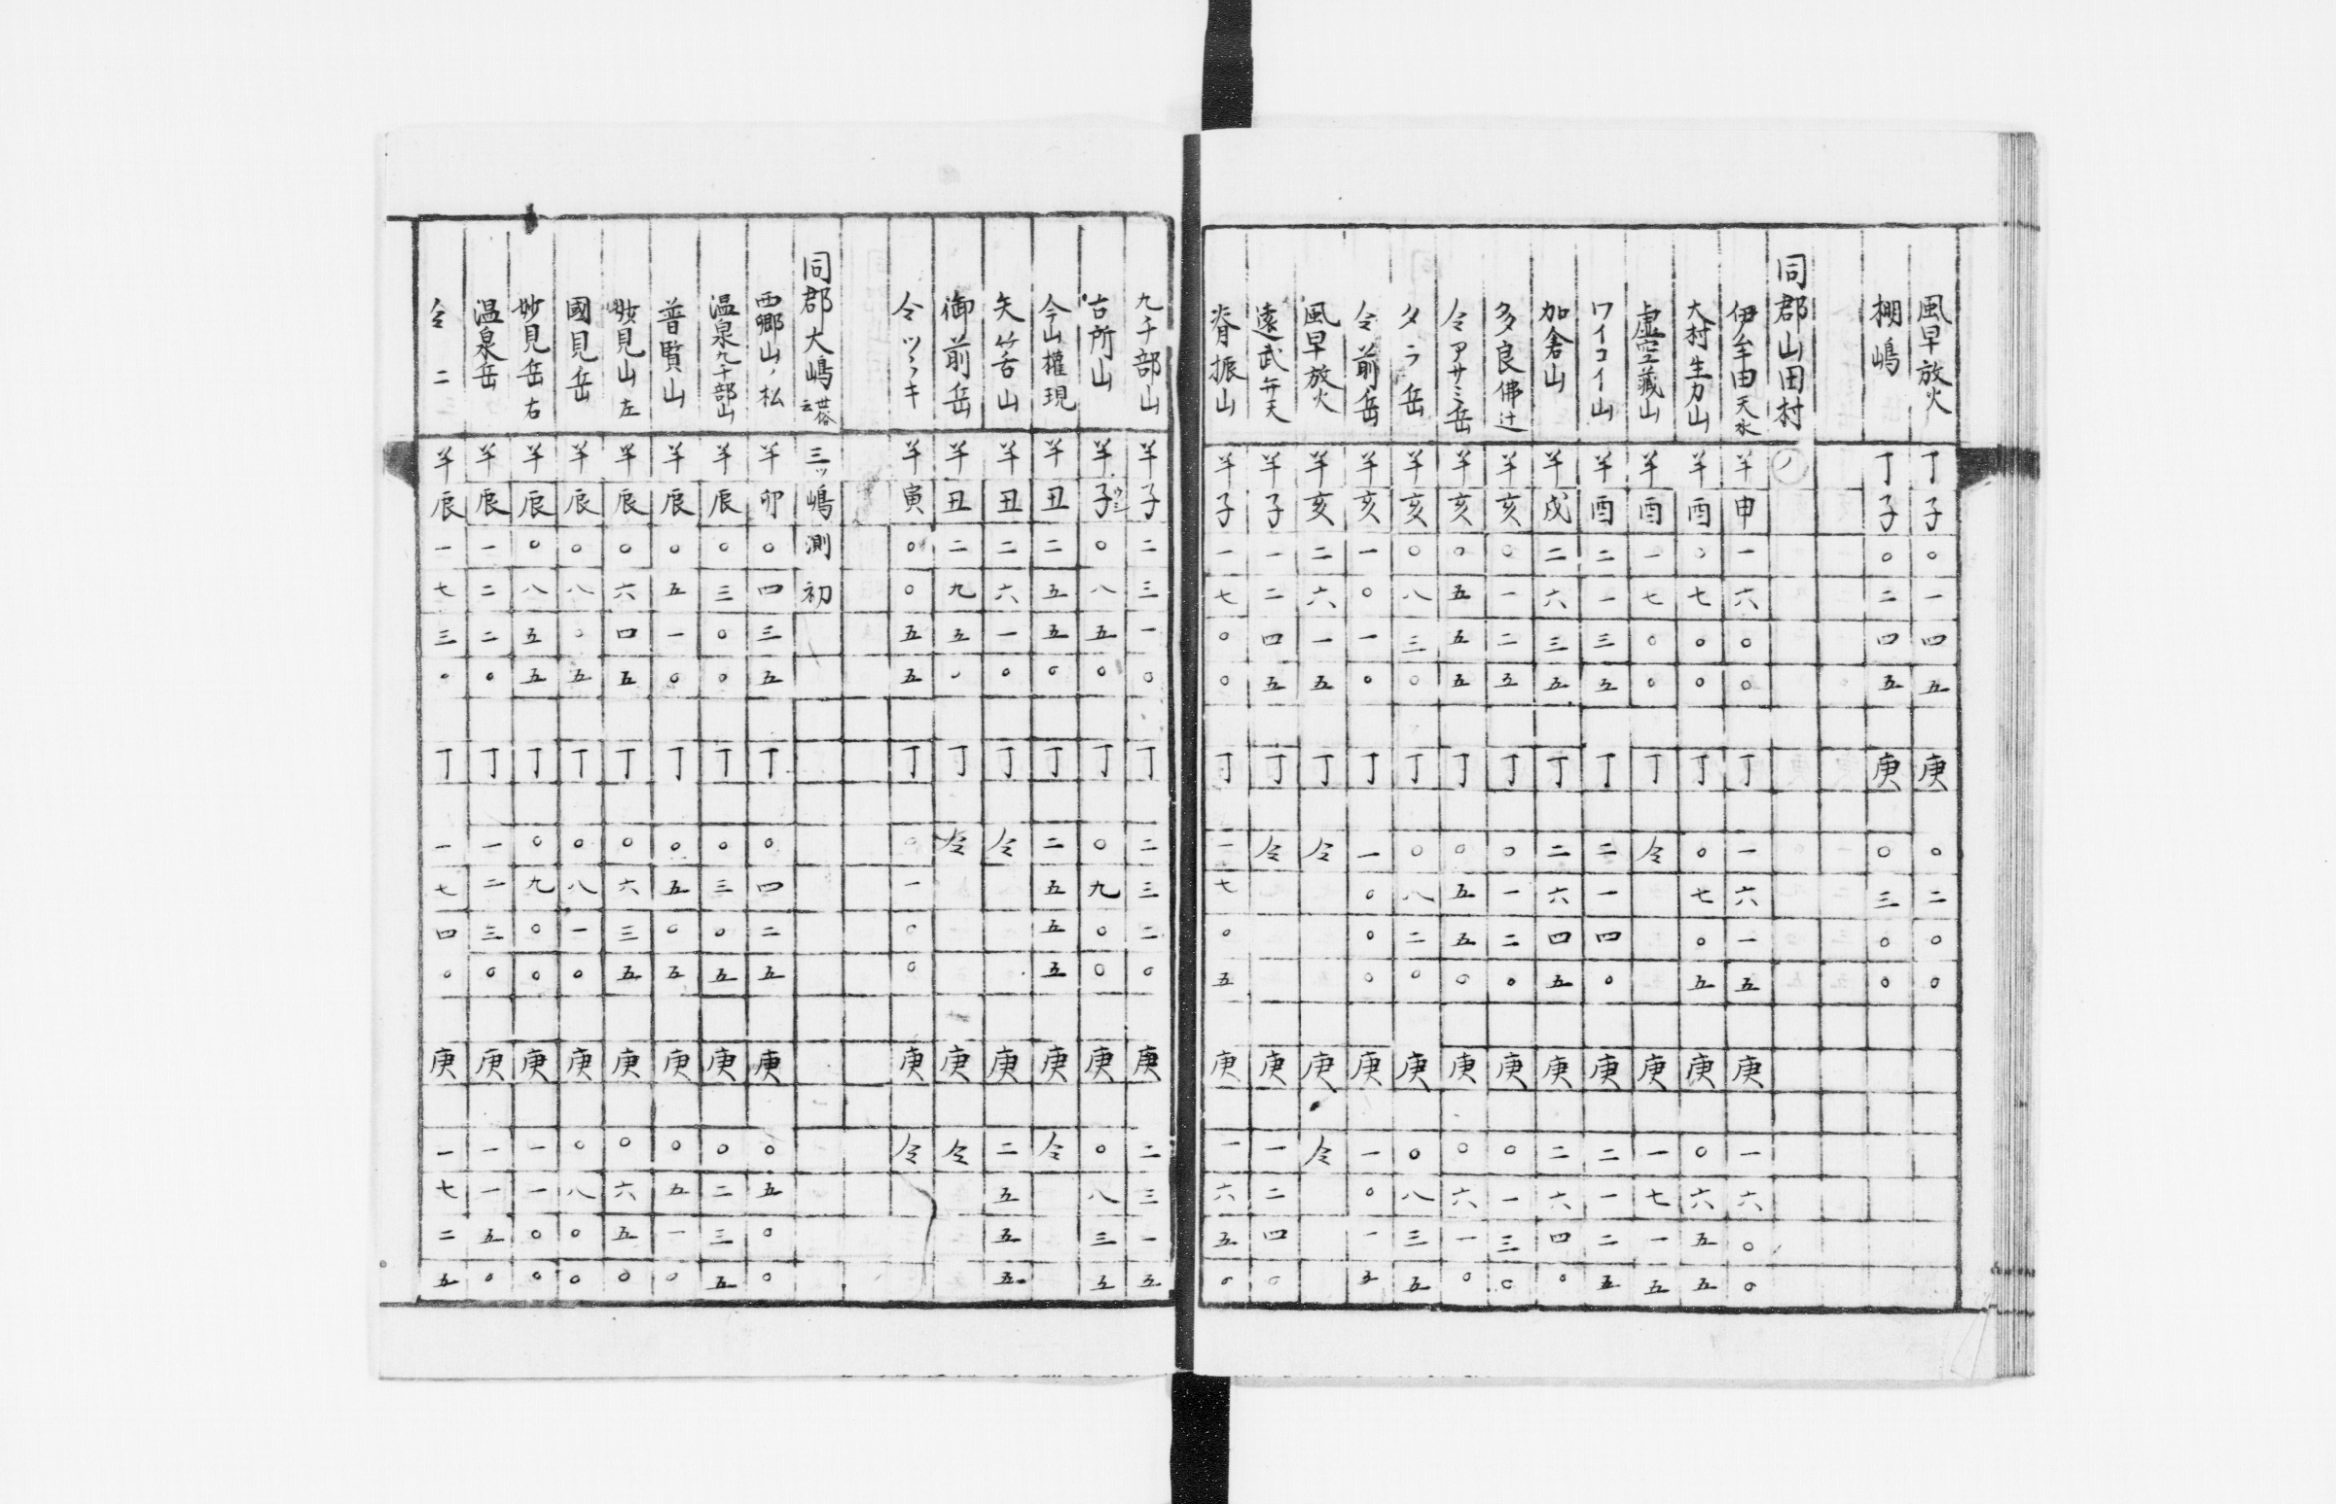 風早放火 丁子〇一四五 庚〇二〇〇
棚嶋 丁子〇二四五 庚〇三〇〇
同郡山田村
伊牟田天水 羊申一六〇〇 丁一六一五 庚一六〇〇
大村生力山 羊酉〇七〇〇 丁〇七〇五 庚〇六五五
虚空蔵山 羊酉一七〇〇 丁仝 庚一七一五
ワイコイ山 羊酉二一三五 丁二一四〇 庚二一二五
加倉山 羊戌二六三五 丁二六四五 庚二六四〇
多良佛辻 羊亥〇一二五 丁〇一二〇 庚〇一三〇
仝アサミ岳 羊亥〇五五五 丁〇五五〇 庚〇六一〇
タラ岳 羊亥〇八三〇 丁〇八二〇 庚〇八三五
仝前岳 羊亥一〇一〇 丁一〇〇〇 庚一〇一五
風早放火 羊亥二六一五 丁仝 庚仝
遠武弁天 羊子一二四五 丁仝 庚一二四〇
脊振山 羊子一七〇〇 丁一七〇五 庚一六五〇
九千部山 羊子二三一〇 丁二三二〇 庚二三一五
古所山 羊子〇八五〇 丁〇九〇〇 庚〇八三五
今山權現 羊丑二五五〇 丁二五五五 庚仝
矢筈山 羊丑二六一〇 丁仝 庚二五五五
御前岳 羊丑二九五〇 丁仝 庚仝
仝ツヽキ 羊寅〇〇五五 丁〇一〇〇 庚仝
同郡大嶋 三ッ嶋測初
西郷山ノ松 羊卯〇四三五 丁〇四二五 庚〇五〇〇
温泉九千部山 羊辰〇三〇〇 丁〇三〇五 庚〇二三五
普賢山 羊辰〇五一〇 丁〇五〇五 庚〇五一〇
妙見山左 羊辰〇六四五 丁〇六三五 庚〇六五〇
國見岳 羊辰〇八〇五 丁〇八一〇 庚〇八〇〇
妙見岳右 羊辰〇八五五 丁〇九〇〇 庚一一〇〇
温泉岳 羊辰一二二〇 丁一二三〇 庚一一五〇
仝二 羊辰一七三〇 丁一七四〇 庚一七二五